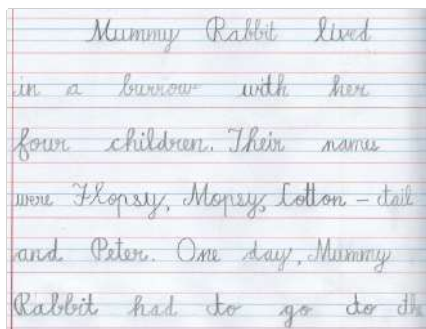 Mummy Rabbit lived
in a burrow with her
four children. Their names
were Flopsy, Mopsy, Cotton - tail
and Peter. One day, Mummy
Rabbit had to go to th